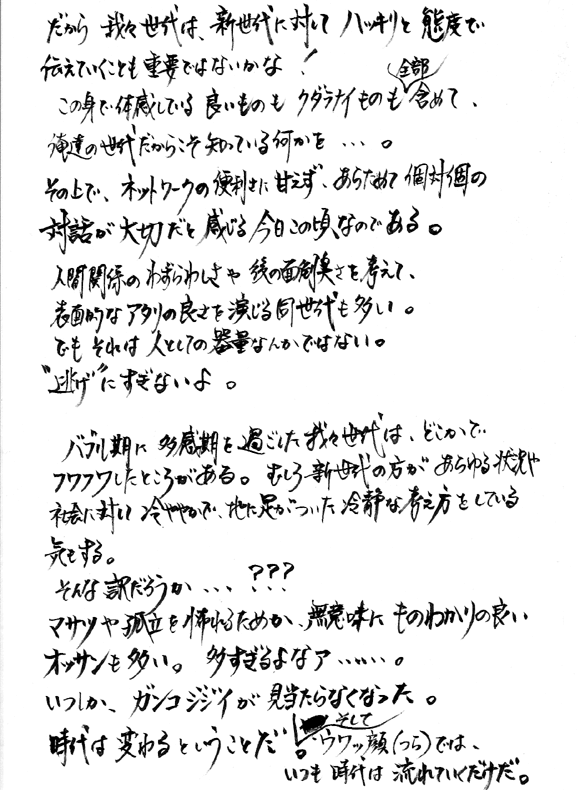 だから 我々世代は、新世代に対して ハッキリと 態度で
伝えていくことも重要ではないかな!
この身で体感している 良いものも クダラナイものも 全部 含めて、
俺達の世代だからこそ知っている何かを ・・・。
その上で、ネットワークの便利さに甘えず、あらためて 個対個の
対話が大切だと 感じる 今日この頃、なのである。
人間関係の わずらわしさや 後の面倒臭さを考えて、
表面的なアタリの良さを 演じる同世代も多い。
でも それは 人としての 器量なんかではない。
"逃げ"にすぎないよ。
バブル期に 多感期を過ごした我々世代は、どこかで
フワフワしたところがある。むしろ新世代の方が あらゆる状況や
社会に対して 冷ややかで、地に足がついた 冷静な考え方をしている
気もする。
そんな訳だろうか ・・・ ???
マサツや孤立を怖れるためか、無意味に ものわかりの良い
オッサンも多い。 多すぎるよなァ ・・・・・・。
いつしか、ガンコジジイが 見当たらなくなった。
時代は 変わるということだ。そして ウワッ顔(つら)では、
いつも 時代は 流れていくだけだ。